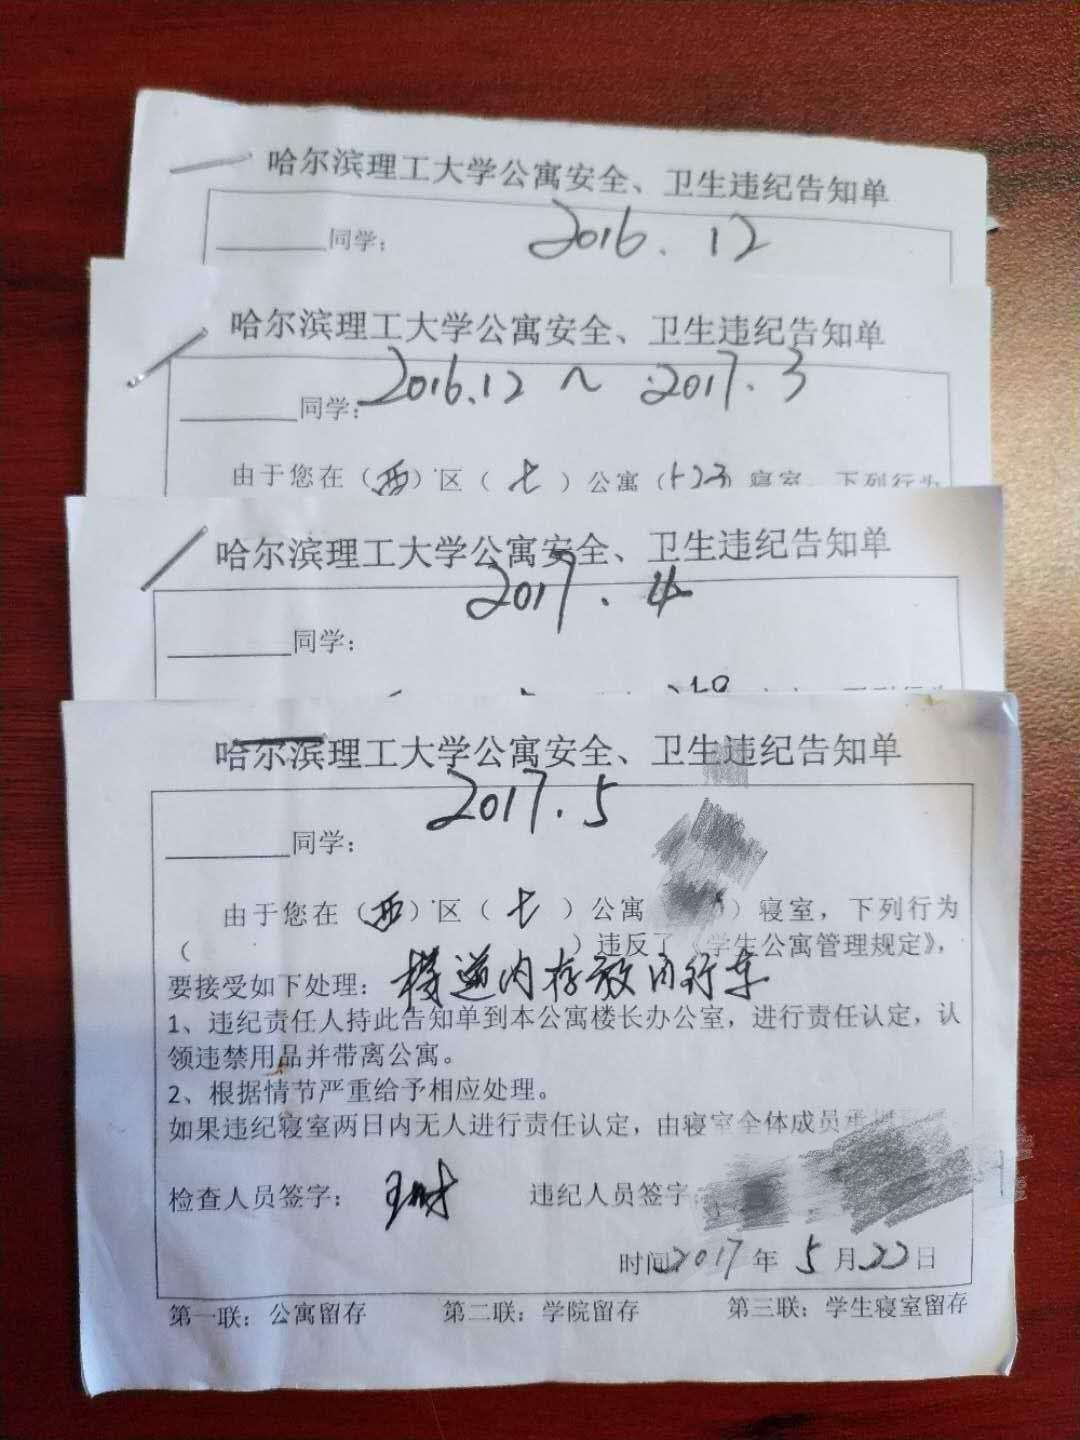 哈尔滨理工大学公寓安全、卫生违纪告知单
同学： 2016.12
哈尔滨理工大学公寓安全、卫生违纪告知单
同学： 2016.12 ~ 2017.3
由于您在（西）区（七）公寓（523）寝室，下列行为
哈尔滨理工大学公寓安全、卫生违纪告知单
2017.4
同学：
哈尔滨理工大学公寓安全、卫生违纪告知单
2017.5
同学：
由于您在（西）区（七）公寓 ）寝室，下列行为
（ ）违反了《学生公寓管理规定》，
要接受如下处理： 楼道内存放自行车
1、违纪责任人持此告知单到本公寓楼长办公室，进行责任认定，认
领违禁用品并带离公寓。
2、根据情节严重给予相应处理。
如果违纪寝室两日内无人进行责任认定，由寝室全体成员
检查人员签字： 违纪人员签字：
时间 2017年5月22日
第一联：公寓留存 第二联：学院留存 第三联：学生寝室留存